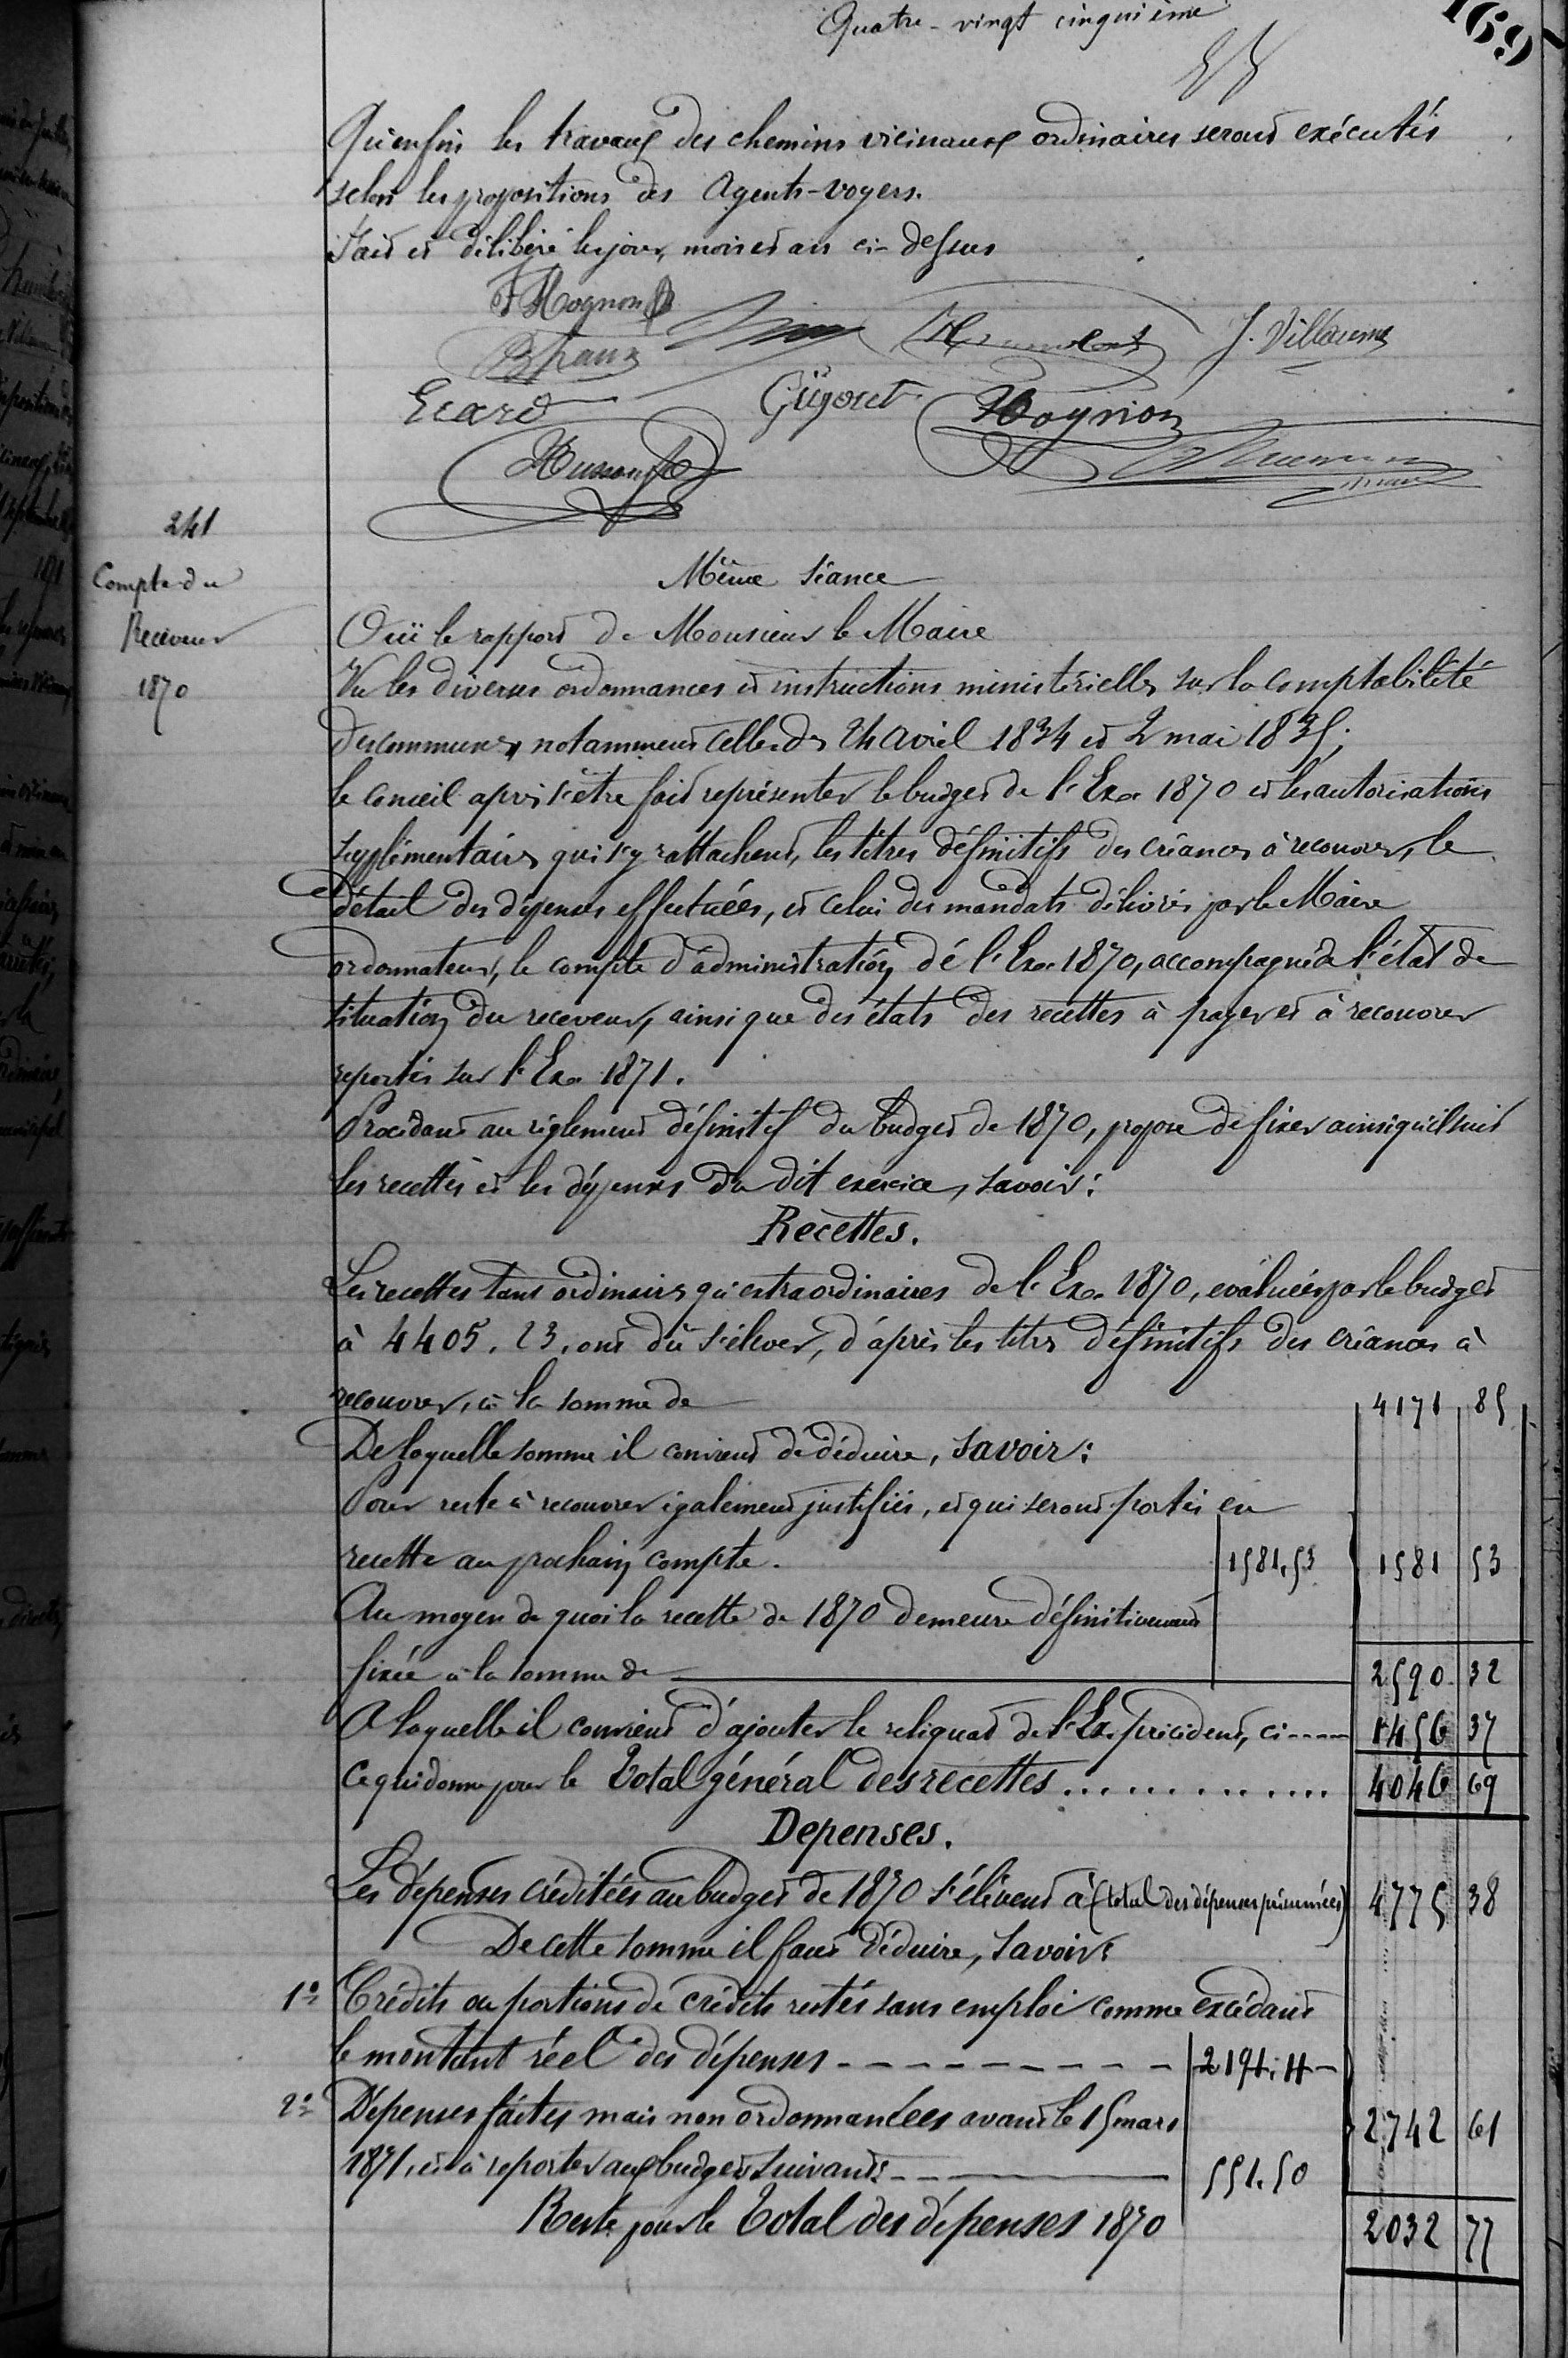 Quatre-vingt cinquième
169
Qu'enfin les travaux des chemins vicinaux ordinaires seront exécutés
selon les propositions des Agents-voyers.
Fait et délibéré les jour, mois et an ci-dessus
F Mognon
J. Villaume
Ecard Gigout Hognon
241
Compte du
Receveur
1870
Même séance
Ouï le rapport de Monsieur le Maire
Vu les diverses ordonnances et instructions ministérielles sur la comptabilité
des communes, notamment celles des 24 Avril 1834 et 2 mai 1835;
le conseil après s'être fait représenter le budget de l'Exce 1870 et les autorisations
supplémentaires qui s'y rattachent, les titres définitifs des créances à recouvrer, le
détail des dépenses effectuées, et celui des mandats délivrés par le Maire
ordonnateur, le compte d'administration de l'Exce 1870, accompagné de l'état de
situation du receveur, ainsi que des états des recettes à payer et à recouvrer
reportés sur l'Exce 1871.
Procédant au règlement définitif du budget de 1870, propose de fixer ainsi qu'il suit
les recettes et les dépenses du dit exercice, savoir:
Recettes.
Les recettes tant ordinaires qu'extraordinaires de l'Exce 1870, évaluées par le budget
à 4405.23, ont dû s'élever, d'après les titres définitifs des créances à
recouvrer, à la somme de 4171 85
De laquelle somme il convient de déduire, savoir:
Pour reste à recouvrer également justifiés, et qui seront portés en
recette au prochain compte. 1581.53 1581 53
Au moyen de quoi la recette de 1870 demeure définitivement
fixée à la somme de 2590 32
A laquelle il convient d'ajouter le reliquat de l'Ex. précédent, ci---- 1456 37
Ce qui donne pour le Total général des recettes ............. 4046 69
Depenses.
Les dépenses créditées au budget de 1870 s'élèvent à (total des dépenses présumées) 4775 38
De cette somme il faut déduire, savoir:
1° Crédits ou portions de crédits restés sans emploi comme excédant
le montant réel des dépenses - - - - - - - - - 2191.11
2° Dépenses faites mais non ordonnancées avant le 15 mars 2742 61
1871, et à reporter aux budgets suivants - - 551.50
Reste pour le Total des dépenses 1870 2032 77